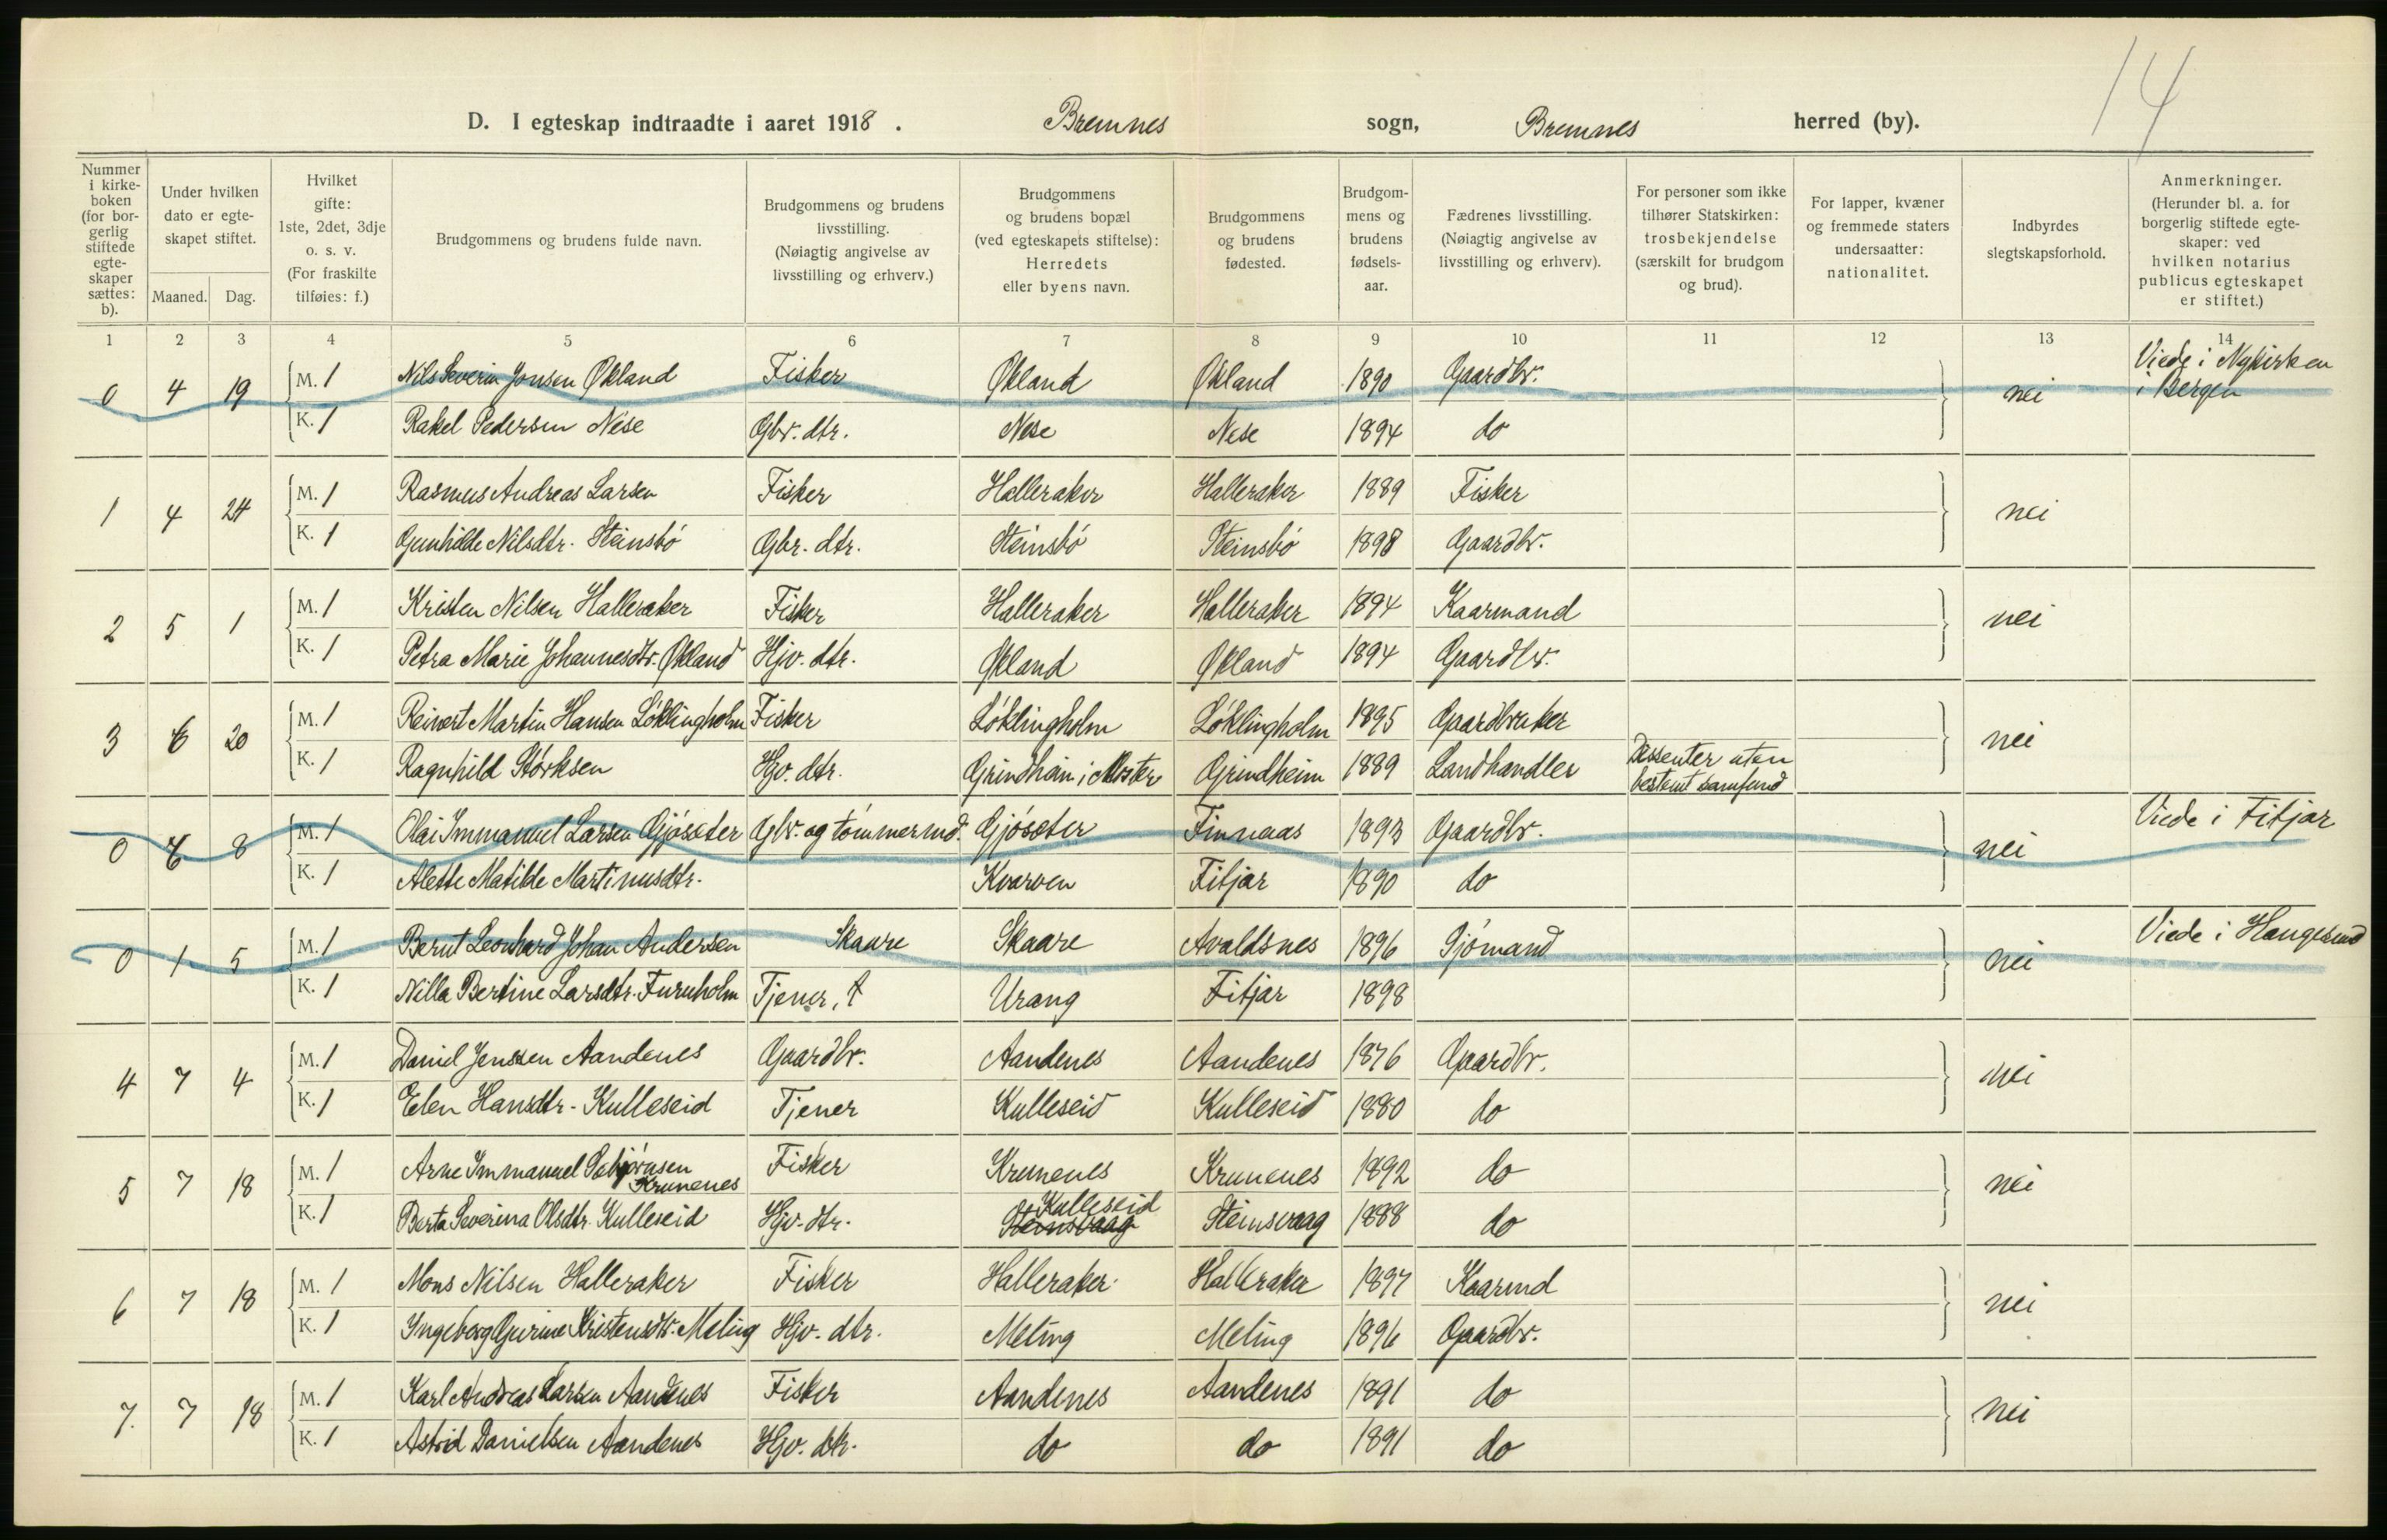 14
D. I egteskap indtraadte i aaret 1918. Bremnes sogn, Bremnes herred (by).
Nummer i kirkeboken (for borgerlig stiftede egteskaper sættes: b).
Under hvilken dato er egteskapet stiftet.
Maaned. Dag.
Hvilket gifte: 1ste, 2det, 3dje o. s. v. (For fraskilte tilføies: f.)
Brudgommens og brudens fulde navn.
Brudgommens og brudens livsstilling. (Nøiagtig angivelse av livsstilling og erhverv.)
Brudgommens og brudens bopæl (ved egteskapets stiftelse): Herredets eller byens navn.
Brudgommens og brudens fødested.
Brudgommens og brudens fødselsaar.
Fædrenes livsstilling. (Nøiagtig angivelse av livsstilling og erhverv).
For personer som ikke tilhører Statskirken: trosbekjendelse (særskilt for brudgom og brud).
For lapper, kvæner og fremmede staters undersaatter: nationalitet.
Indbyrdes slegtskapsforhold.
Anmerkninger. (Herunder bl. a. for borgerlig stiftede egteskaper: ved hvilken notarius publicus egteskapet er stiftet.)
1 2 3 4 5 6 7 8 9 10 11 12 13 14
0 4 19 M. 1 Nils Severin Jonsen Økland Fisker Økland Økland 1890 Gaardbr. nei Viede i Nykirken i Bergen
K. 1 Rakel Pedersen Nese Gbr. dtr. Nese Nese 1894 do
1 4 24 M. 1 Rasmus Andreas Larsen Fisker Halleraker Halleraker 1889 Fisker nei
K. 1 Gunhilde Nilsdtr. Steinsbó Gbr. dtr. Steinsbó Steinsbó 1898 Gaardbr.
2 5 1 M. 1 Kristen Nilsen Halleraker Fisker Halleraker Halleraker 1894 Kaarmand nei
K. 1 Petra Marie Johannesdtr. Økland Hjv. dtr. Økland Økland 1894 Gaardbr.
3 6 20 M. 1 Reinert Martin Hansen Lóklingholm Fisker Lóklingholm Lóklingholm 1895 Gaardbruker nei
K. 1 Ragnhild Størksen Hjv. dtr. Grindheim i Moster Grindheim 1889 Landhandler Dissenter uten bestemt samfund
0 6 8 M. 1 Olai Immanuel Larsen Gjósæter Gbr. og tómmermd. Gjósæter Finnaas 1893 Gaardbr. nei Viede i Fitjar
K. 1 Alette Matilde Martinusdtr. Kvarven Fitjar 1890 do
0 1 5 M. 1 Bernt Leonhard Johan Andersen Skaare Skaare Avaldsnes 1896 Sjómand nei Viede i Haugesund
K. 1 Nilla Bertine Larsdtr. Furuholm Tjener, t Urang Fitjar 1898
4 7 4 M. 1 Daniel Jenssen Aandenes Gaardbr. Aandenes Aandenes 1876 Gaardbr. nei
K. 1 Elen Hansdtr. Kulleseid Tjener Kulleseid Kulleseid 1880 do
5 7 18 M. 1 Arne Immanuel Krunenes Fisker Krunenes Krunenes 1892 do nei
K. 1 Berta Severina Olsdtr. Kulleseid Hjv. dtr. Steinsvaag Kulleseid Steinsvaag 1888 do
6 7 18 M. 1 Mons Nilsen Halleraker Fisker Halleraker Halleraker 1897 Kaarmd nei
K. 1 Ingeborg Gurine Kristensdtr. Meling Hjv. dtr. Meling Meling 1896 Gaardbr.
7. 7 18 M. 1 Karl Andreas Larsen Aandenes Fisker Aandenes Aandenes 1891 do nei
K. 1 Astrid Danielsen Aandenes Hjv. dtr. do do 1891 do